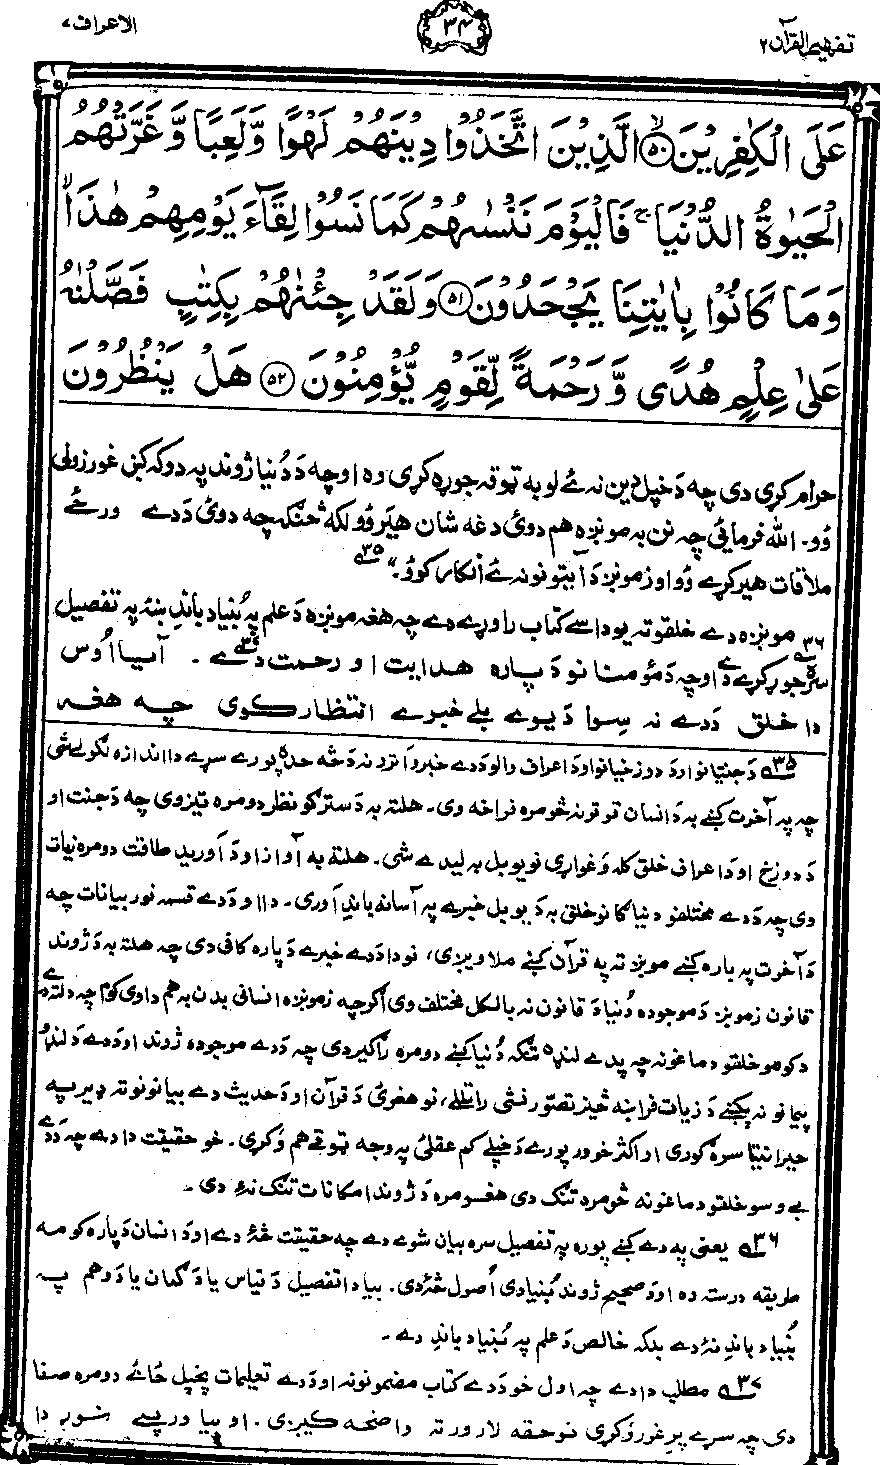 تفهيم القرآن ٢
٣٤
الاعراف ٧
عَلَى الْكٰفِرِيْنَ ﴿٥٠﴾ الَّذِيْنَ اتَّخَذُوْا دِيْنَهُمْ لَهْوًا وَّلَعِبًا وَّغَرَّتْهُمُ
الْحَيٰوةُ الدُّنْيَا ۚ فَالْيَوْمَ نَنْسٰىهُمْ كَمَا نَسُوْا لِقَآءَ يَوْمِهِمْ هٰذَا ۙ
وَمَا كَانُوْا بِاٰيٰتِنَا يَجْحَدُوْنَ ﴿٥١﴾ وَلَقَدْ جِئْنٰهُمْ بِكِتٰبٍ فَصَّلْنٰهُ
عَلٰى عِلْمٍ هُدًى وَّرَحْمَةً لِّقَوْمٍ يُّؤْمِنُوْنَ ﴿٥٢﴾ هَلْ يَنْظُرُوْنَ
حرام کړی دی چه دَ خپل دین نه ئے لوبه ټوقه جوړه کړی وه اوچه دَ دُنیا ژوند په دوکه کښ غورزولی
وُو. الله فرمائی چه نن به مونږه هم دوئ دغه شان هیر وُو لکه څنګه چه دوئ دَ دے ورځے
ملاقات هیر کړے وُو او زمونږ دَ آیتونو نه ئے اِنکار کوؤ."٣٥
مونږه دے خلقو ته یو داسے کتاب راوړے دے چه هغه مونږه دَ علم په بُنیاد باندِ بنه په تفصیل
سره جوړ کړے دے٣٦ اوچه دَ مؤمنانو دَ پاره هدایت او رحمت دے. آیا اوس
دا خلق دَ دے نه سِوا دَ یوے بلے خبرے انتظار کوی چه هغه
٣٥ دَ جنتیانو او دَ دوزخیانو او دَ اعراف والو دَ دے خبرو اترو نه دَ څه حده پورے سړے دا اندازه لګولے شی
چه په آخرت کښے به دَ انسان قوتونه څومره فراخه وی. هلته به دَ سترګو نظر دومره تیز وی چه دَ جنت او
دَ دوزخ او دَ اعراف خلق کله وَغواړی نو یو بل به لیدے شی. هلته به آواز او دَ آوریدِ طاقت دومره زیات
وی چه دَ دے مختلفو دنیاګانو خلق به دَ یو بل خبرے په آسانه باندِ آوری. دا او دَ دے قسمه نور بیانات چه
دَ آخرت په باره کښے مونږ ته په قرآن کښے ملاویږی، نو دا دَ دے خبرے دَ پاره کافی دی چه هلته به دَ ژوند
قانون زمونږ دَ موجوده دُنیا دَ قانون نه بالکل مختلف وی اګرچه زمونږه انسانی بدن به هم دا وی کوم چه دلته دے
دَ کومو خلقو دماغونه چه په دے لنډه تنګه دُنیا کښے دومره راګیر دی چه دَ دے موجوده ژوند او دَ دے دَ لنډو
پیمانو نه پکښے دَ زیات فراخه څیز تصور نشی راتللے، نو هغوی دَ قرآن او دَ حدیث دے بیانونو ته ډیر په
حیرانتیا سره ګوری او اکثر خو ورپورے دَ خپلے کم عقلئ په وجه ټوقے هم وَکړی. خو حقیقت دا دے چه دَ دے
بے وسو خلقو دماغونه څومره تنګ دی هغومره دَ ژوند امکانات تنګ نهٔ دی.
٣٦ یعنی په دے کښے پوره په تفصیل سره بیان شوے دے چه حقیقت څهٔ دے او دَ انسان دَ پاره کومه
طریقه درسته ده او دَ صحیح ژوند بُنیادی اُصول څهٔ دی. بیا دا تفصیل دَ قیاس یا دَ ګمان یا دَ وهم په
بُنیاد باندِ نهٔ دے بلکه خالص دَ علم په بُنیاد باندِ دے.
٣٧ مطلب دا دے چه اول خو دَ دے کتاب مضمونونه او دَ دے تعلیمات پخپل ځائے دومره صفا
دی چه سړے پرِ غور وَکړی نو حقه لار ورته واضحه کیږی. او بیا ورپسے دا